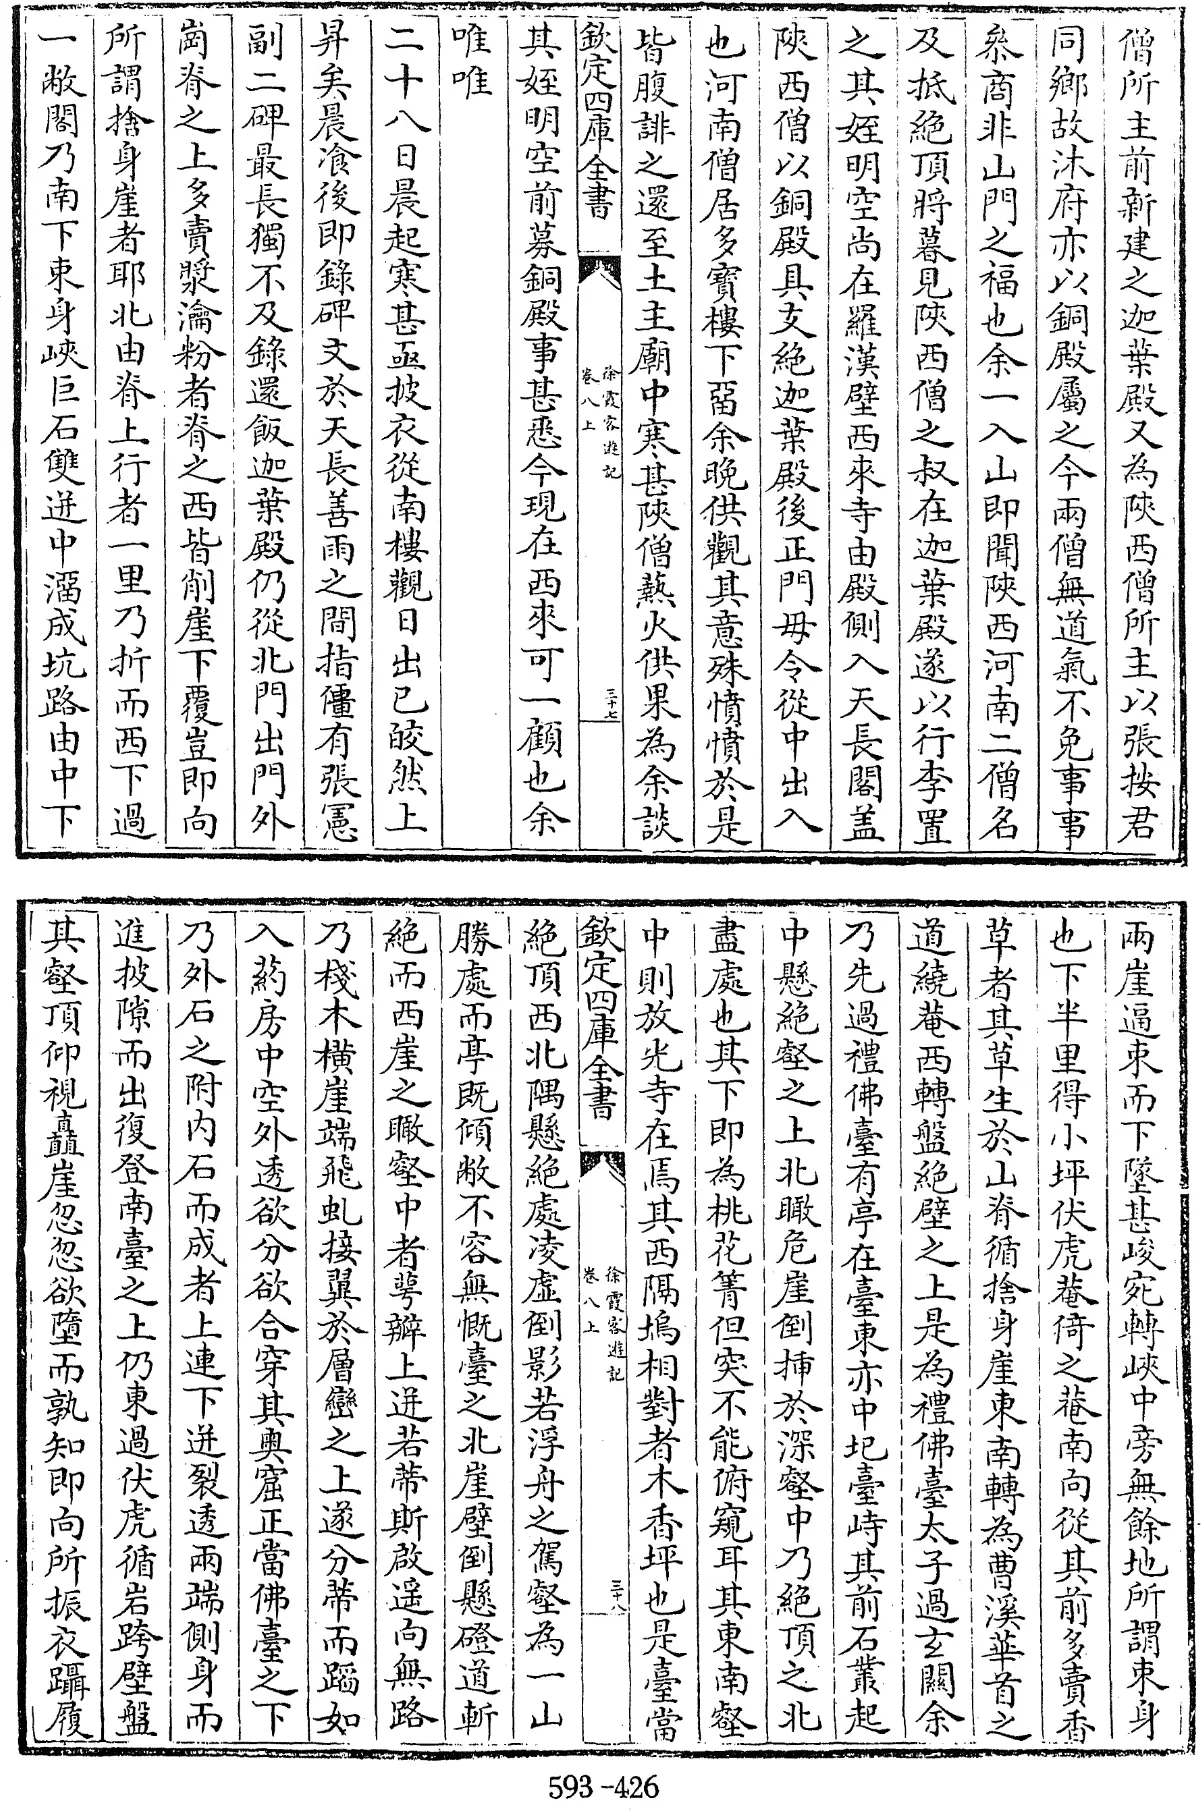 僧所主前新建之迦葉殿又為陜西僧所主以張按君
同鄉故沐府亦以銅殿屬之今兩僧無道氣不免事事
叅商非山門之福也余一入山即聞陜西河南二僧名
及抵絶頂將暮見陜西僧之叔在迦葉殿遂以行李置
之其姪明空尚在羅漢壁西來寺由殿側入天長閣盖
陜西僧以銅殿具支絶迦葉殿後正門毋令從中出入
也河南僧居多寶樓下畱余晩供觀其意殊憤憤於是
皆腹誹之還至土主廟中寒甚陜僧爇火供果為余談
欽定四庫全書
徐霞客遊記
卷八上
三十七
其姪明空前募銅殿事甚悉今現在西來可一顧也余
唯唯
二十八日晨起寒甚亟披衣從南樓觀日出已皎然上
昇矣晨湌後即錄碑文於天長善雨之間指僵有張憲
副二碑最長獨不及錄還飯迦葉殿仍從北門出門外
崗脊之上多賣漿瀹粉者脊之西皆削崖下覆豈即向
所謂捨身崖者耶北由脊上行者一里乃折而西下過
一敝閣乃南下束身峽巨石雙迸中溜成坑路由中下
兩崖逼束而下墜甚峻宛轉峽中旁無餘地所謂束身
也下半里得小坪伏虎菴倚之菴南向從其前多賣香
草者其草生於山脊循捨身崖東南轉為曹溪華首之
道繞菴西轉盤絶壁之上是為禮佛臺太子過玄關余
乃先過禮佛臺有亭在臺東亦中圮臺峙其前石叢起
中懸絶壑之上北瞰危崖倒揷於深壑中乃絶頂之北
盡處也其下即為桃花箐但突不能俯窺耳其東南壑
中則放光寺在焉其西隔塢相對者木香坪也是臺當
欽定四庫全書
徐霞客遊記
卷八上
三十八
絶頂西北隅懸絶處凌虛倒影若浮舟之駕壑為一山
勝處而亭既傾敝不容無慨臺之北崖壁倒懸磴道斬
絶而西崖之瞰壑中者蕚瓣上迸若蒂斯啟遥向無路
乃棧木横崖端飛虬接翼於層巒之上遂分蒂而蹈如
入葯房中空外透欲分欲合穿其奥窟正當佛臺之下
乃外石之附内石而成者上連下迸裂透兩端側身而
進披隙而出復登南臺之上仍東過伏虎循岩跨壁盤
其壑頂仰視矗崖忽忽欲墮而孰知即向所振衣躡履
593-426